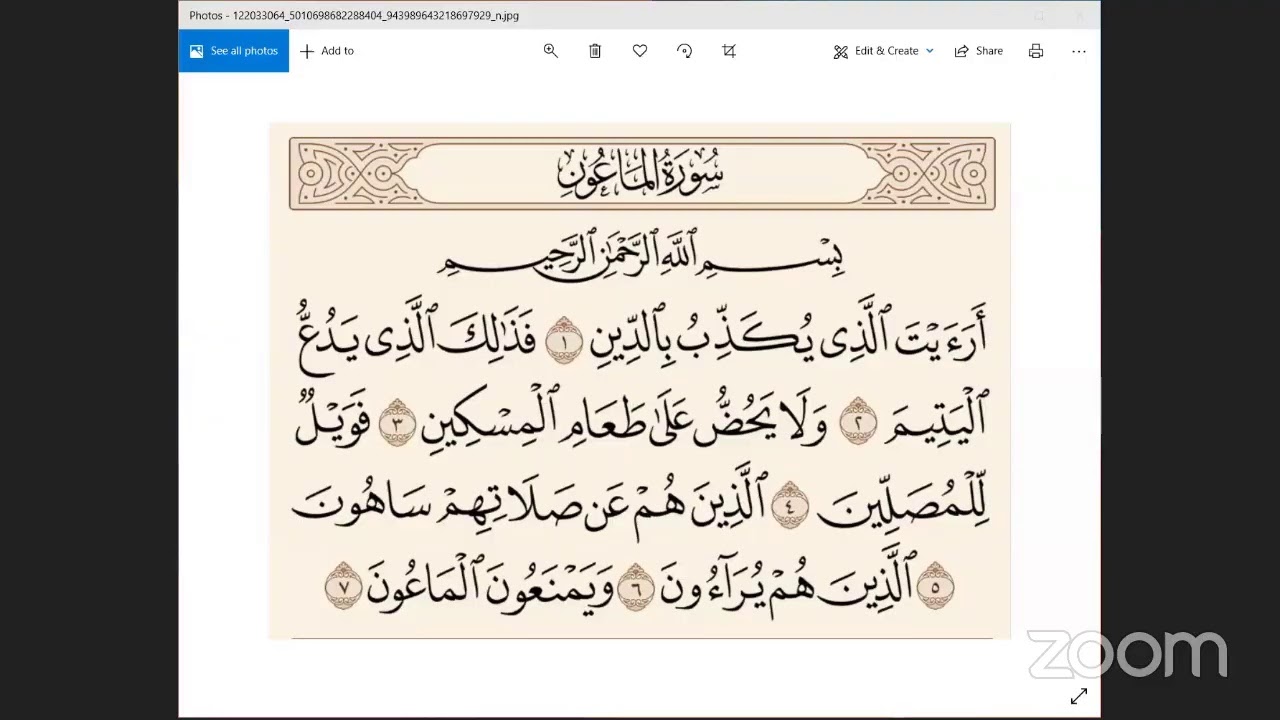 Photos - 122033064_5010698682288404_943989643218697929_n.jpg
See all photos
Add to
Edit & Create
Share
سُورَةُ المَاعُونِ
بِسْمِ ٱللَّهِ ٱلرَّحْمَٰنِ ٱلرَّحِيمِ
أَرَءَيْتَ ٱلَّذِى يُكَذِّبُ بِٱلدِّينِ ١ فَذَٰلِكَ ٱلَّذِى يَدُعُّ
ٱلْيَتِيمَ ٢ وَلَا يَحُضُّ عَلَىٰ طَعَامِ ٱلْمِسْكِينِ ٣ فَوَيْلٌ
لِّلْمُصَلِّينَ ٤ ٱلَّذِينَ هُمْ عَن صَلَاتِهِمْ سَاهُونَ
٥ ٱلَّذِينَ هُمْ يُرَآءُونَ ٦ وَيَمْنَعُونَ ٱلْمَاعُونَ ٧
zoom